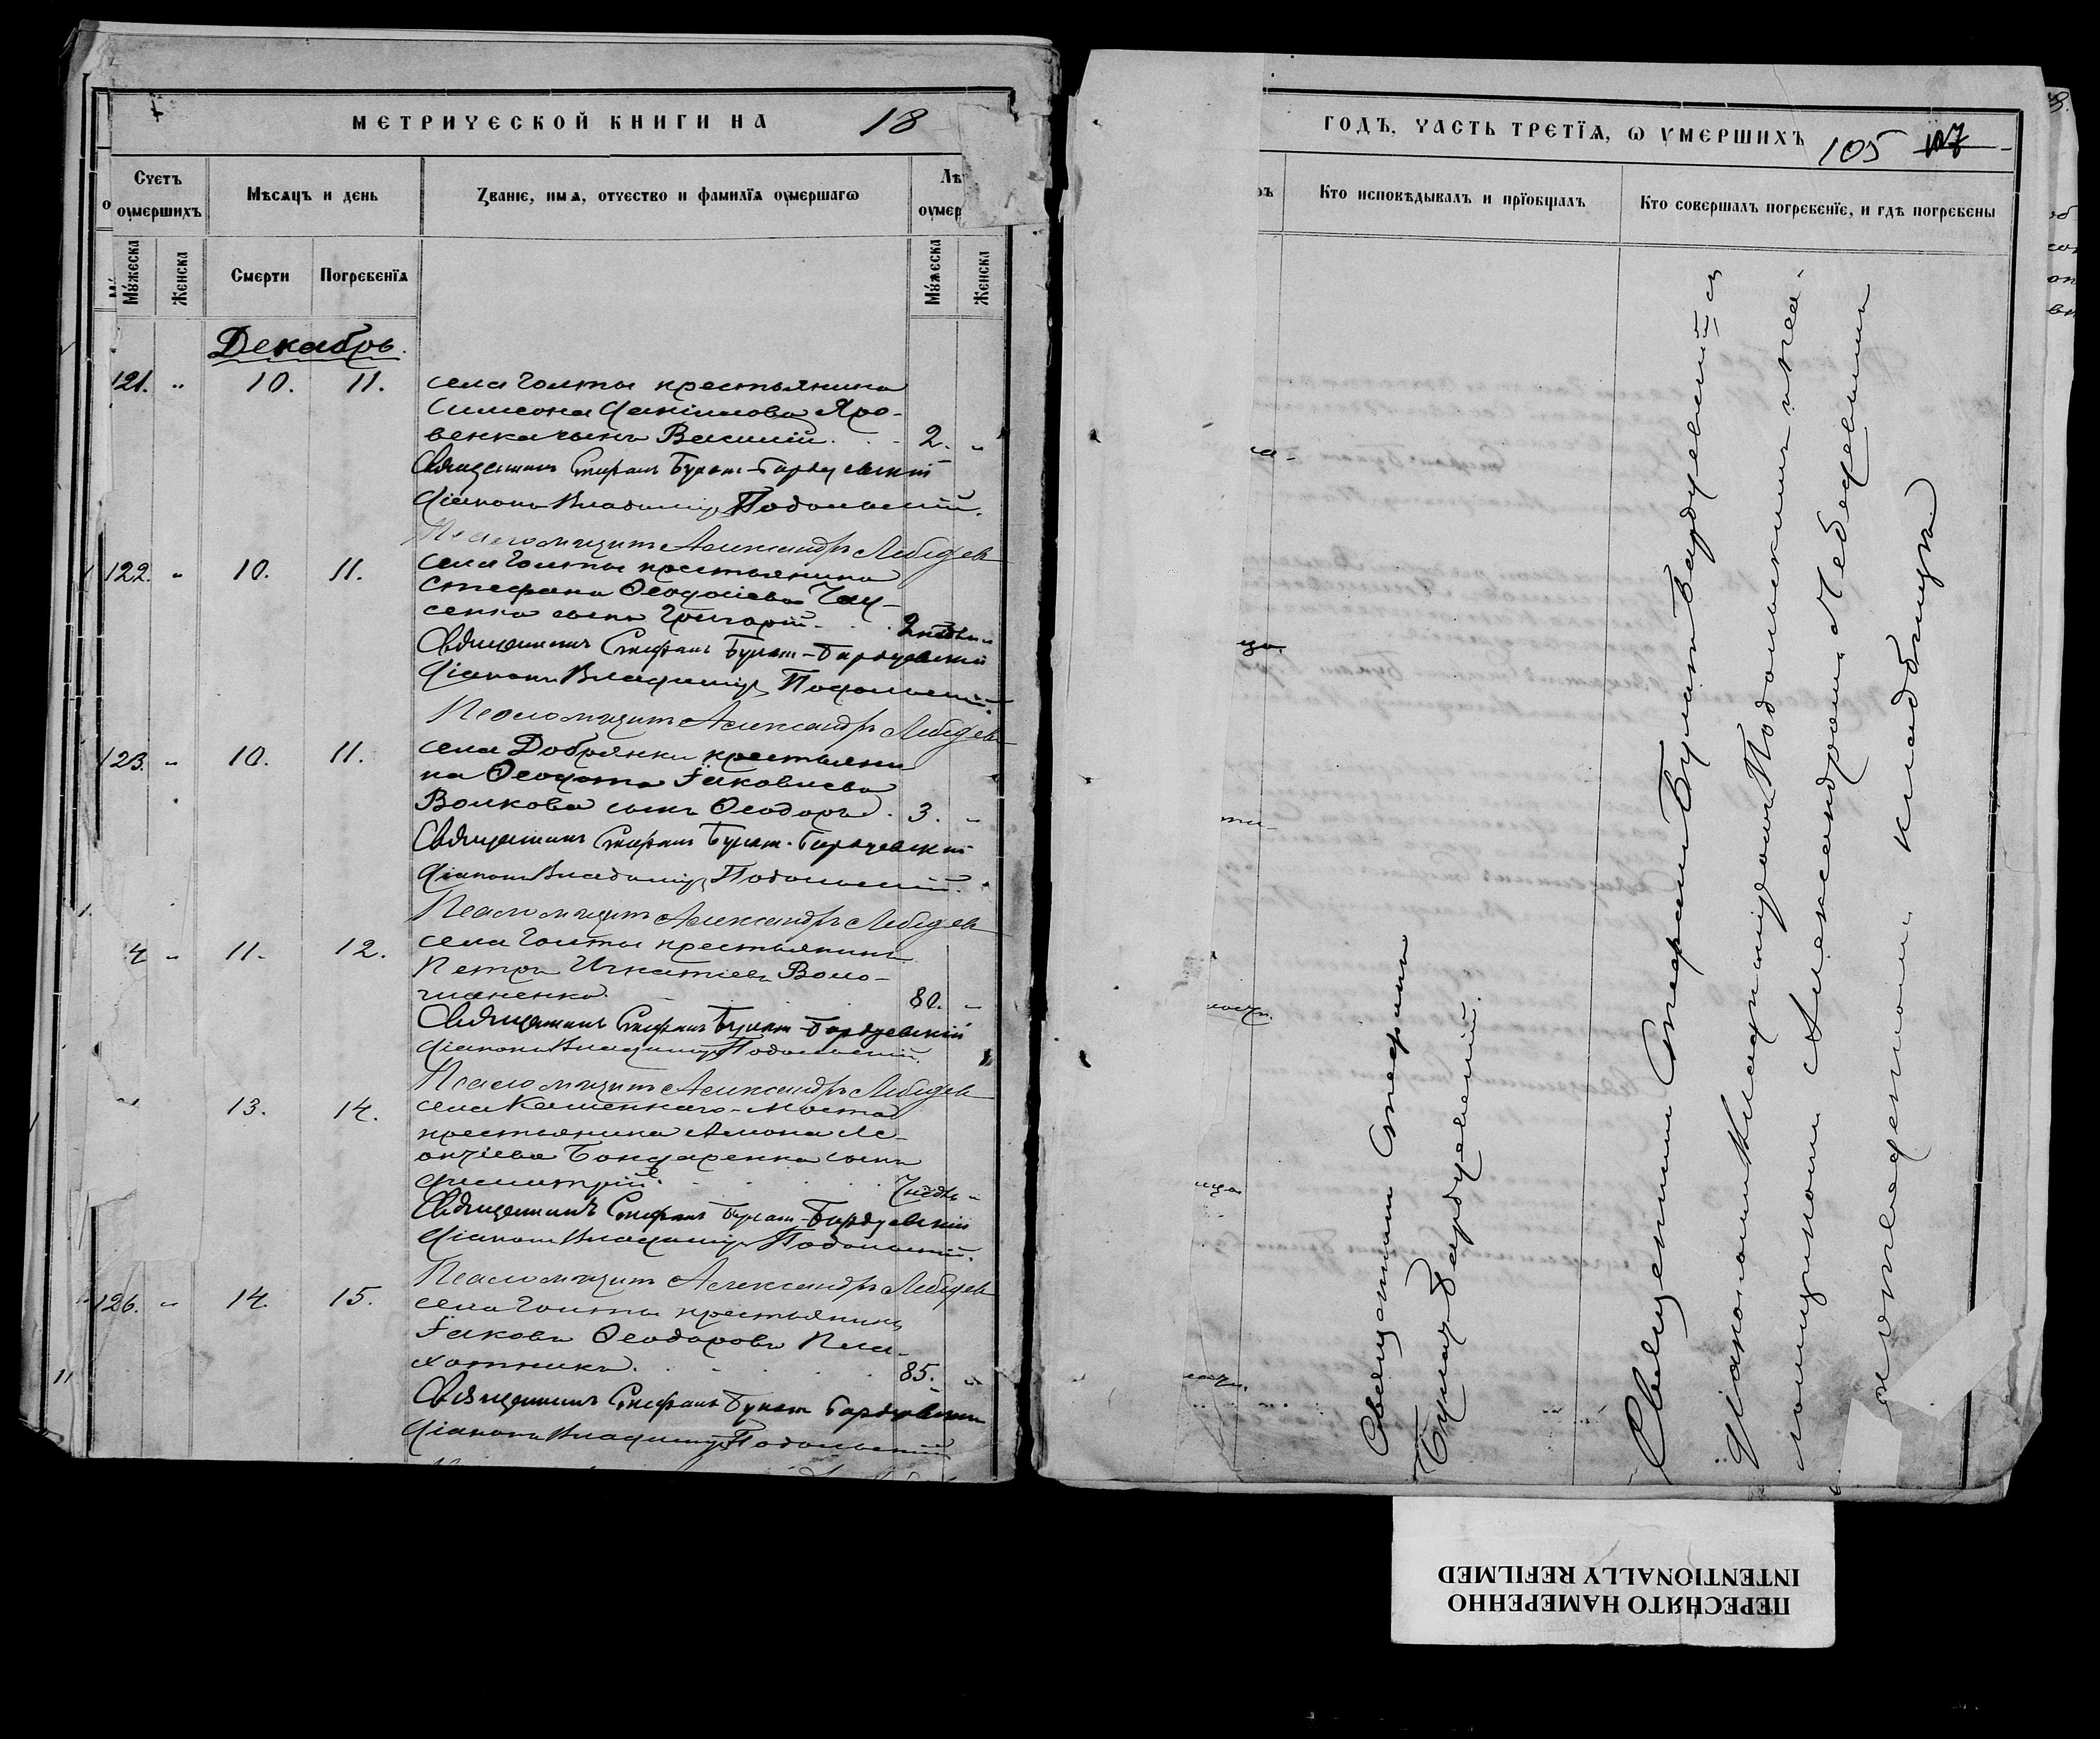 МЕТРИЧЕСКОЙ КНИГИ НА 18
Счетъ ѹмершихъ
Мѣсяцъ и день
Званіе, имѧ, отчество и фамилїа ѹмершагѡ
Лѣ
ѹмер
Мꙋжеска
Женска
Смерти
Погребенїѧ
Мꙋжеска
Женска
Декабрь.
121. " 10. 11. села Голты крестьянина
Симеона Данiилова Яро-
венка сынъ Василій. 2. "
Священникъ Стефанъ Булат-Бардуевскій
Діаконъ Владиміръ Подольскій.
Псаломщикъ Александръ Лебедев
122. " 10. 11. села Голты крестьянина
Стефана Ѳеодосіева
сенка сынъ Григорій. 2 недѣли
Священникъ Стефанъ Булат-Бардуевскій
Діаконъ Владиміръ Подольскій.
Псаломщикъ Александръ Лебедев
123. " 10. 11. села Добрянки крестьяни
на Ѳеодота Іаковлева
Волкова сынъ Ѳеодоръ. 3. "
Священникъ Стефанъ Булат-Бардуевскій
Діаконъ Владиміръ Подольскій.
Псаломщикъ Александръ Лебедев
4 " 11. 12. села Голты крестьянинъ
Петръ Игнатіевъ Воло-
80. "
Священникъ Стефанъ Булат-Бардуевскій
Діаконъ Владиміръ Подольскій
Псаломщикъ Александръ Лебедев
13. 14. села Каменнаго-Моста
крестьянина Ле-
онтіева Бондаренка сынъ
Димитрій. недѣ "
Священникъ Стефанъ Булат-Бардуевскій
Діаконъ Владиміръ Подольскій.
Псаломщикъ Александръ Лебедев
126. " 14. 15. села Голты крестьянинъ
Іаковъ Ѳеодоровъ Пла-
хотникъ. 85. "
Священникъ Стефанъ Булат Бардуевскій
Діаконъ Владиміръ Подольскій
ГОДЪ, ЧАСТЬ ТРЕТЇѦ, Ѡ ѸМЕРШИХЪ 105
Кто исповѣдывалъ и прїобщалъ
Кто совершалъ погребенїе, и гдѣ погребены
Священникъ Стефанъ
Булат-Бардуевскій.
Священникъ Стефанъ Булат-Бардуевскій съ
діакономъ Владиміромъ Подольскимъ и пса-
ломщикомъ Александромъ Лебедевымъ
на отведенномъ кладбищѣ
ПЕРЕСНЯТО НАМЕРЕННО
INTENTIONALLY REFILMED